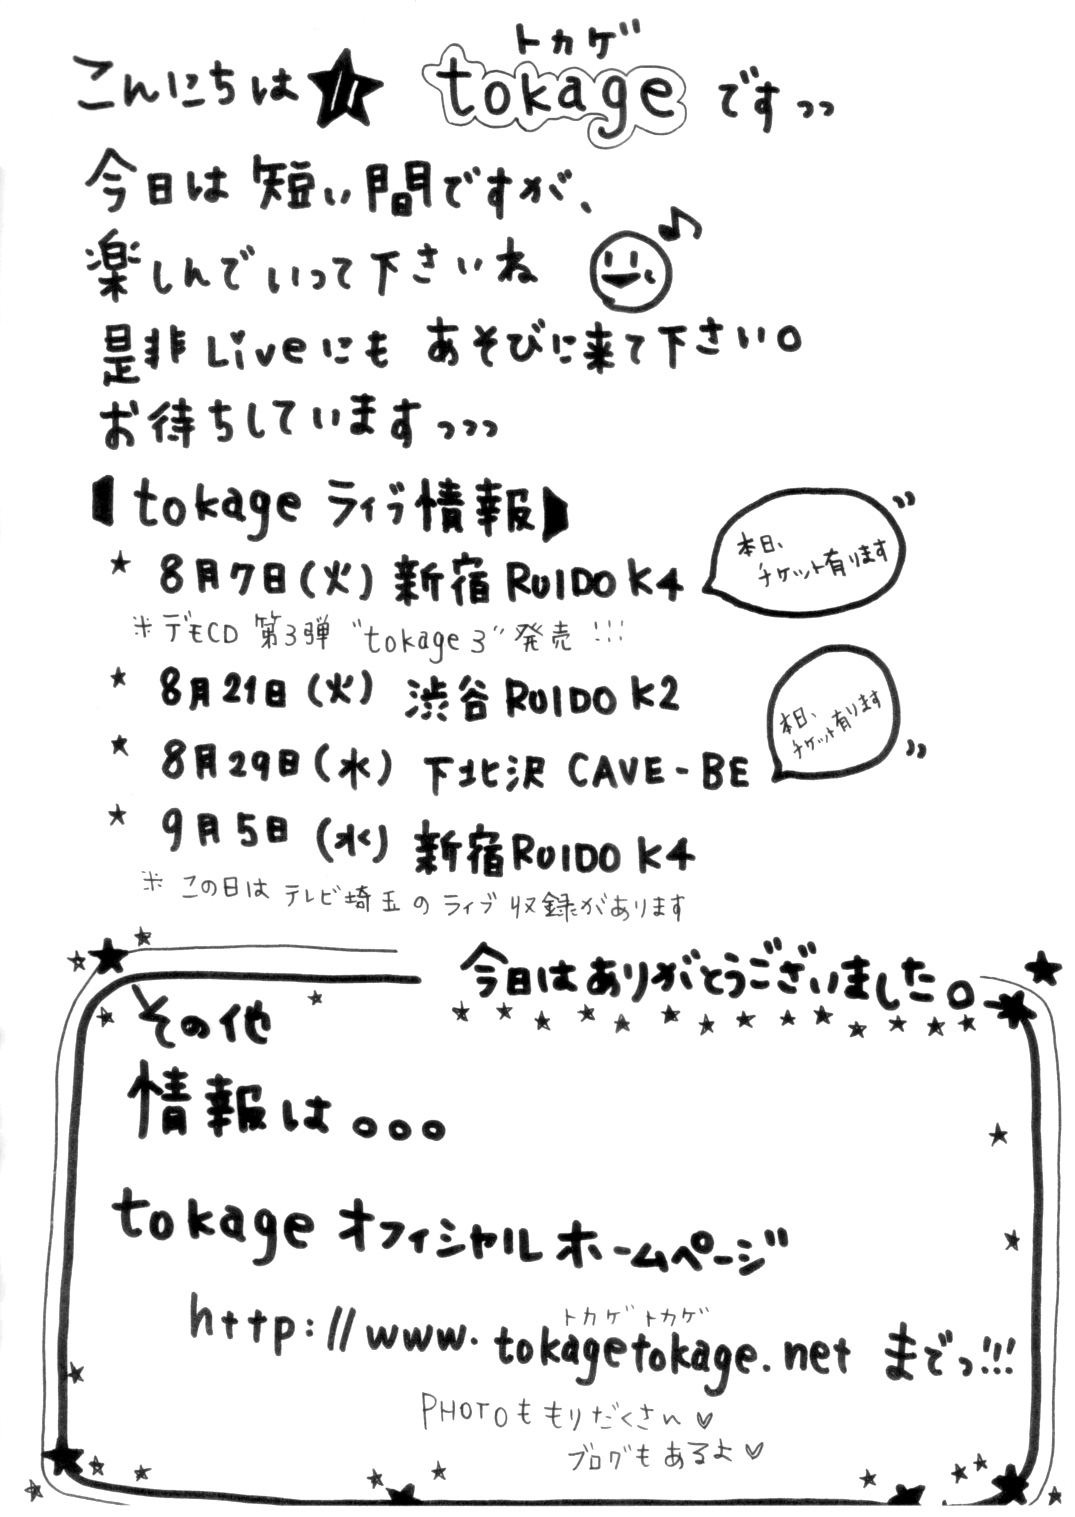 こんにちは★ tokage ですっっ
トカゲ
今日は短い間ですが、
楽しんでいって下さいね
是非Liveにも あそびに来て下さい。
お待ちしていますっっっ
【tokage ライブ情報】
★ 8月7日(火) 新宿 RUIDO K4
本日、
チケット有ります
※デモCD 第3弾 “tokage 3” 発売 !!!
★ 8月21日(火) 渋谷 RUIDO K2
本日、
チケット有ります
★ 8月29日(水) 下北沢 CAVE-BE
★ 9月5日(水) 新宿 RUIDO K4
※ この日は テレビ埼玉の ライブ収録があります
今日はありがとうございました。
その他
情報は。。。
tokage オフィシャル ホームページ
トカゲ トカゲ
http://www.tokagetokage.net までっ!!!
PHOTOももりだくさん♡
ブログもあるよ♡